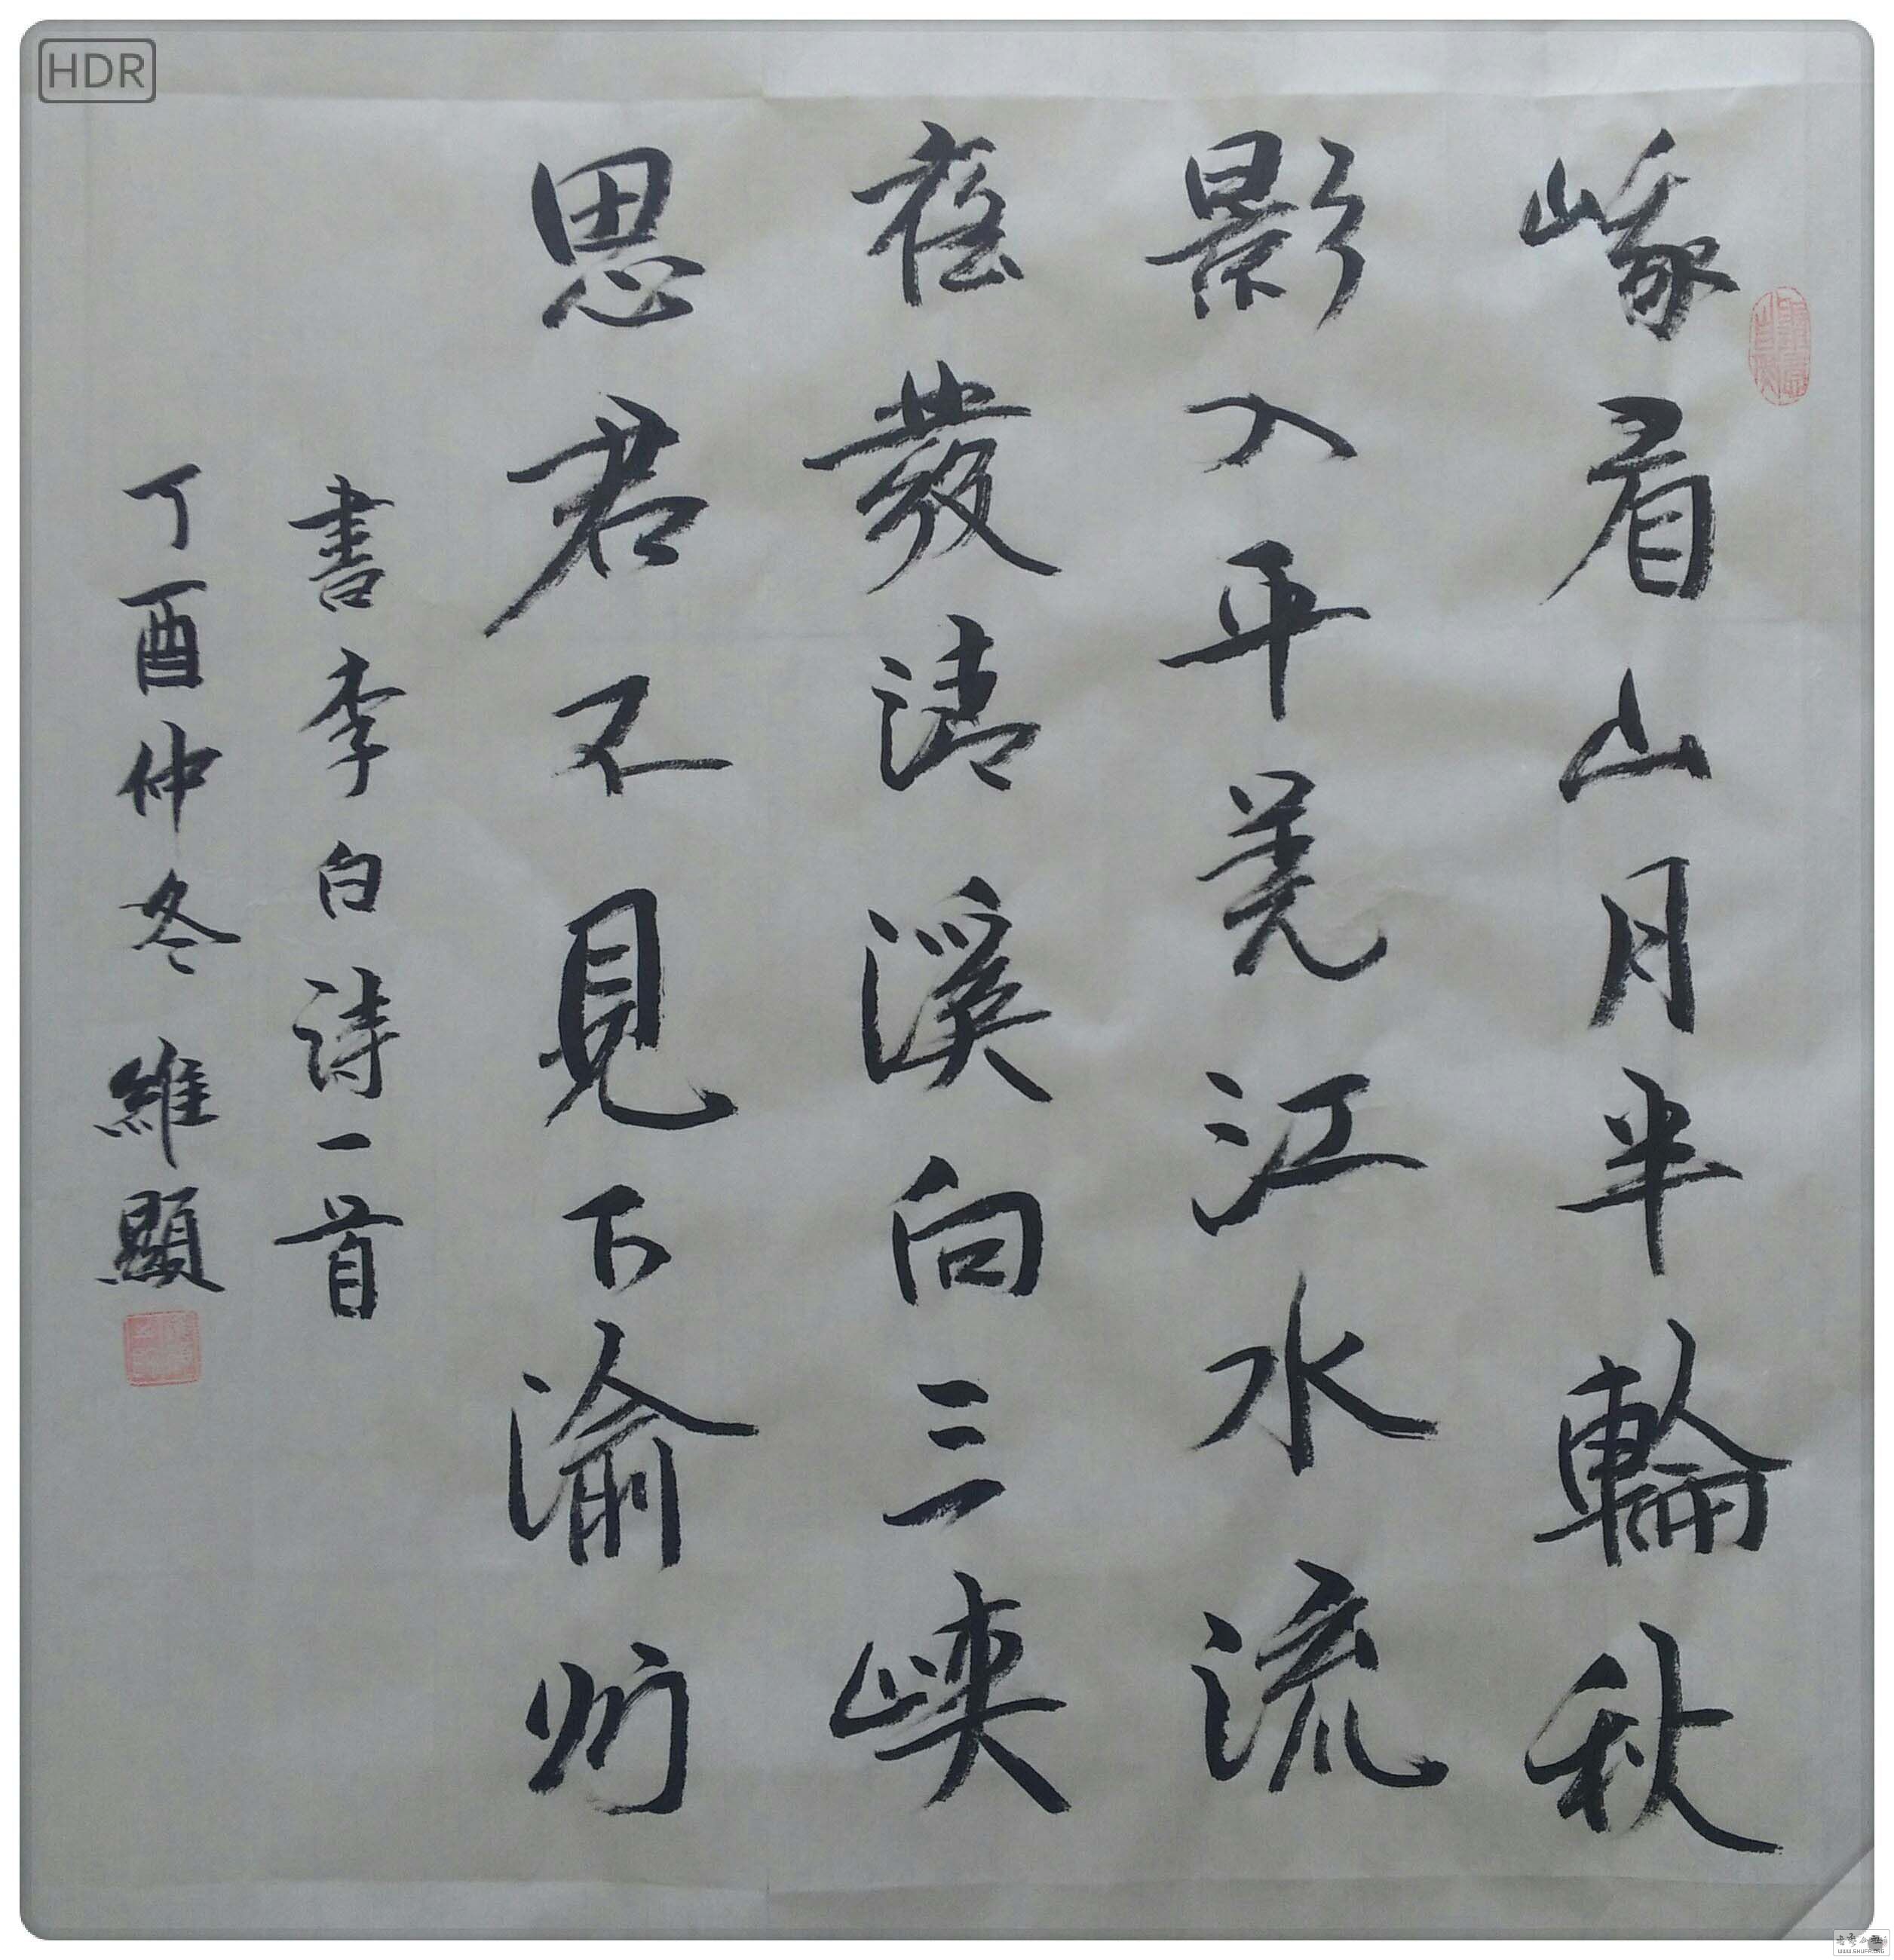 HDR
峨眉山月半輪秋
影入平羌江水流
夜發清溪向三峽
思君不見下渝州
書李白詩一首
丁酉仲冬 維顯